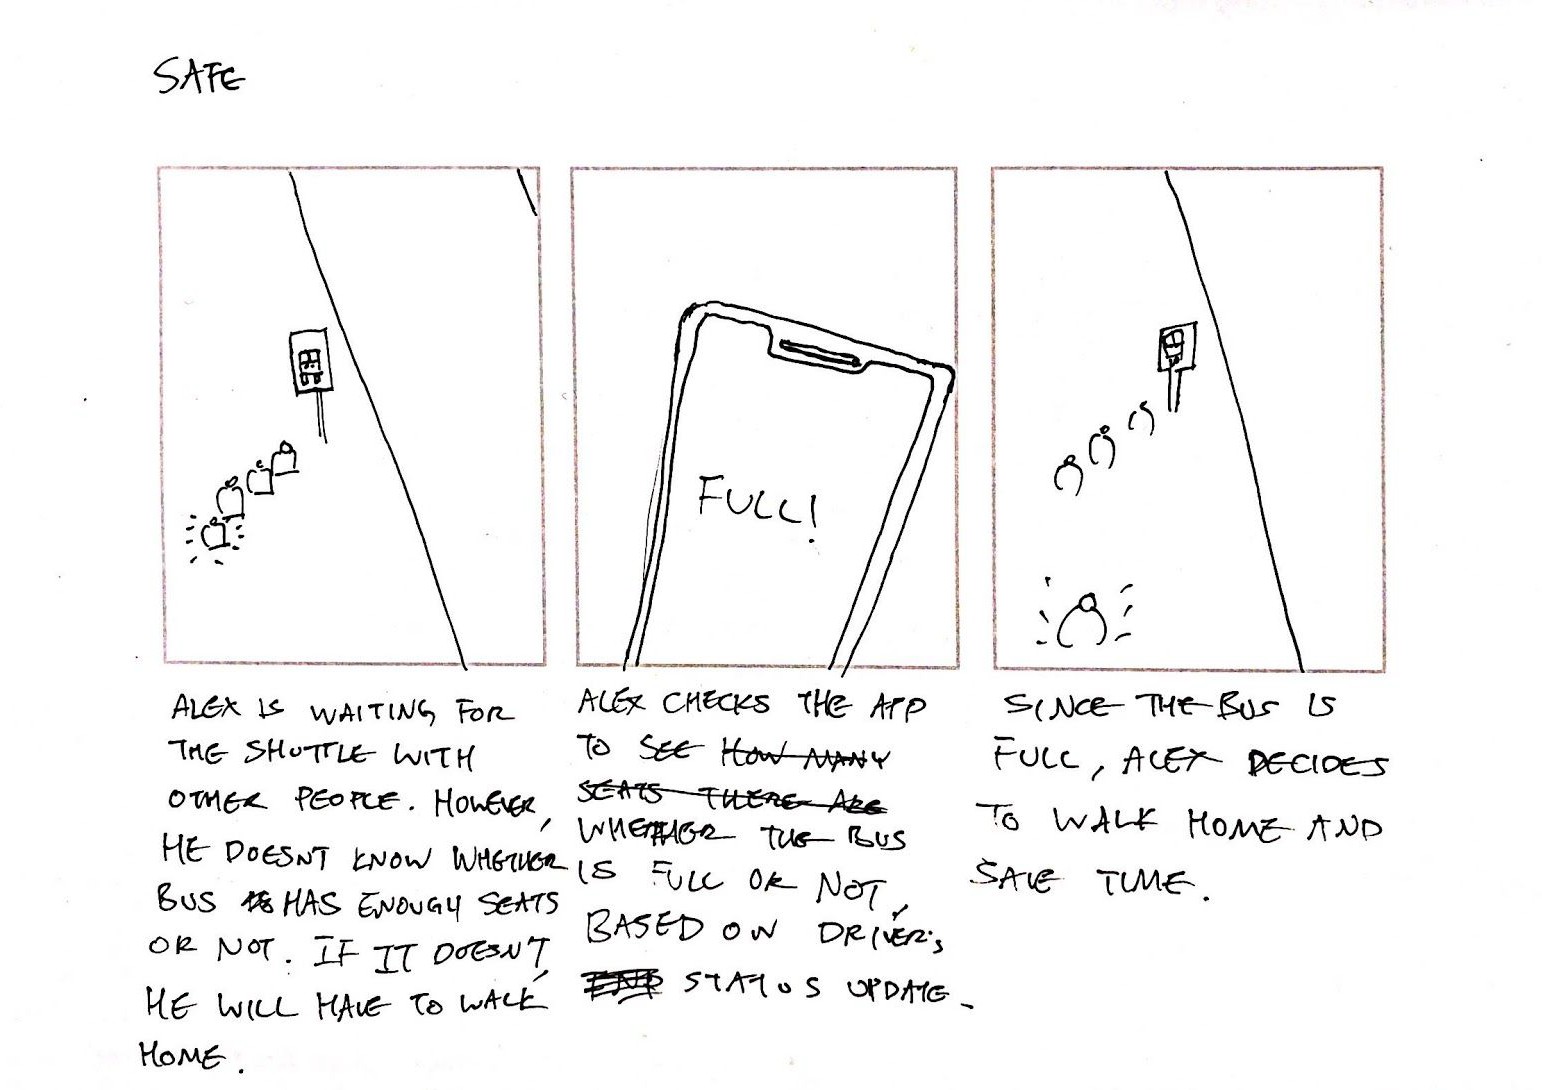 SAFE
FULL!
ALEX IS WAITING FOR
THE SHUTTLE WITH
OTHER PEOPLE. HOWEVER,
HE DOESNT KNOW WHETHER
BUS HAS ENOUGH SEATS
OR NOT. IF IT DOESN'T,
HE WILL HAVE TO WALK
HOME.
ALEX CHECKS THE APP
TO SEE HOW MANY
SEATS THERE ARE
WHETHER THE BUS
IS FULL OR NOT,
BASED ON DRIVER'S
STATUS UPDATE.
SINCE THE BUS IS
FULL, ALEX DECIDES
TO WALK HOME AND
SAVE TIME.